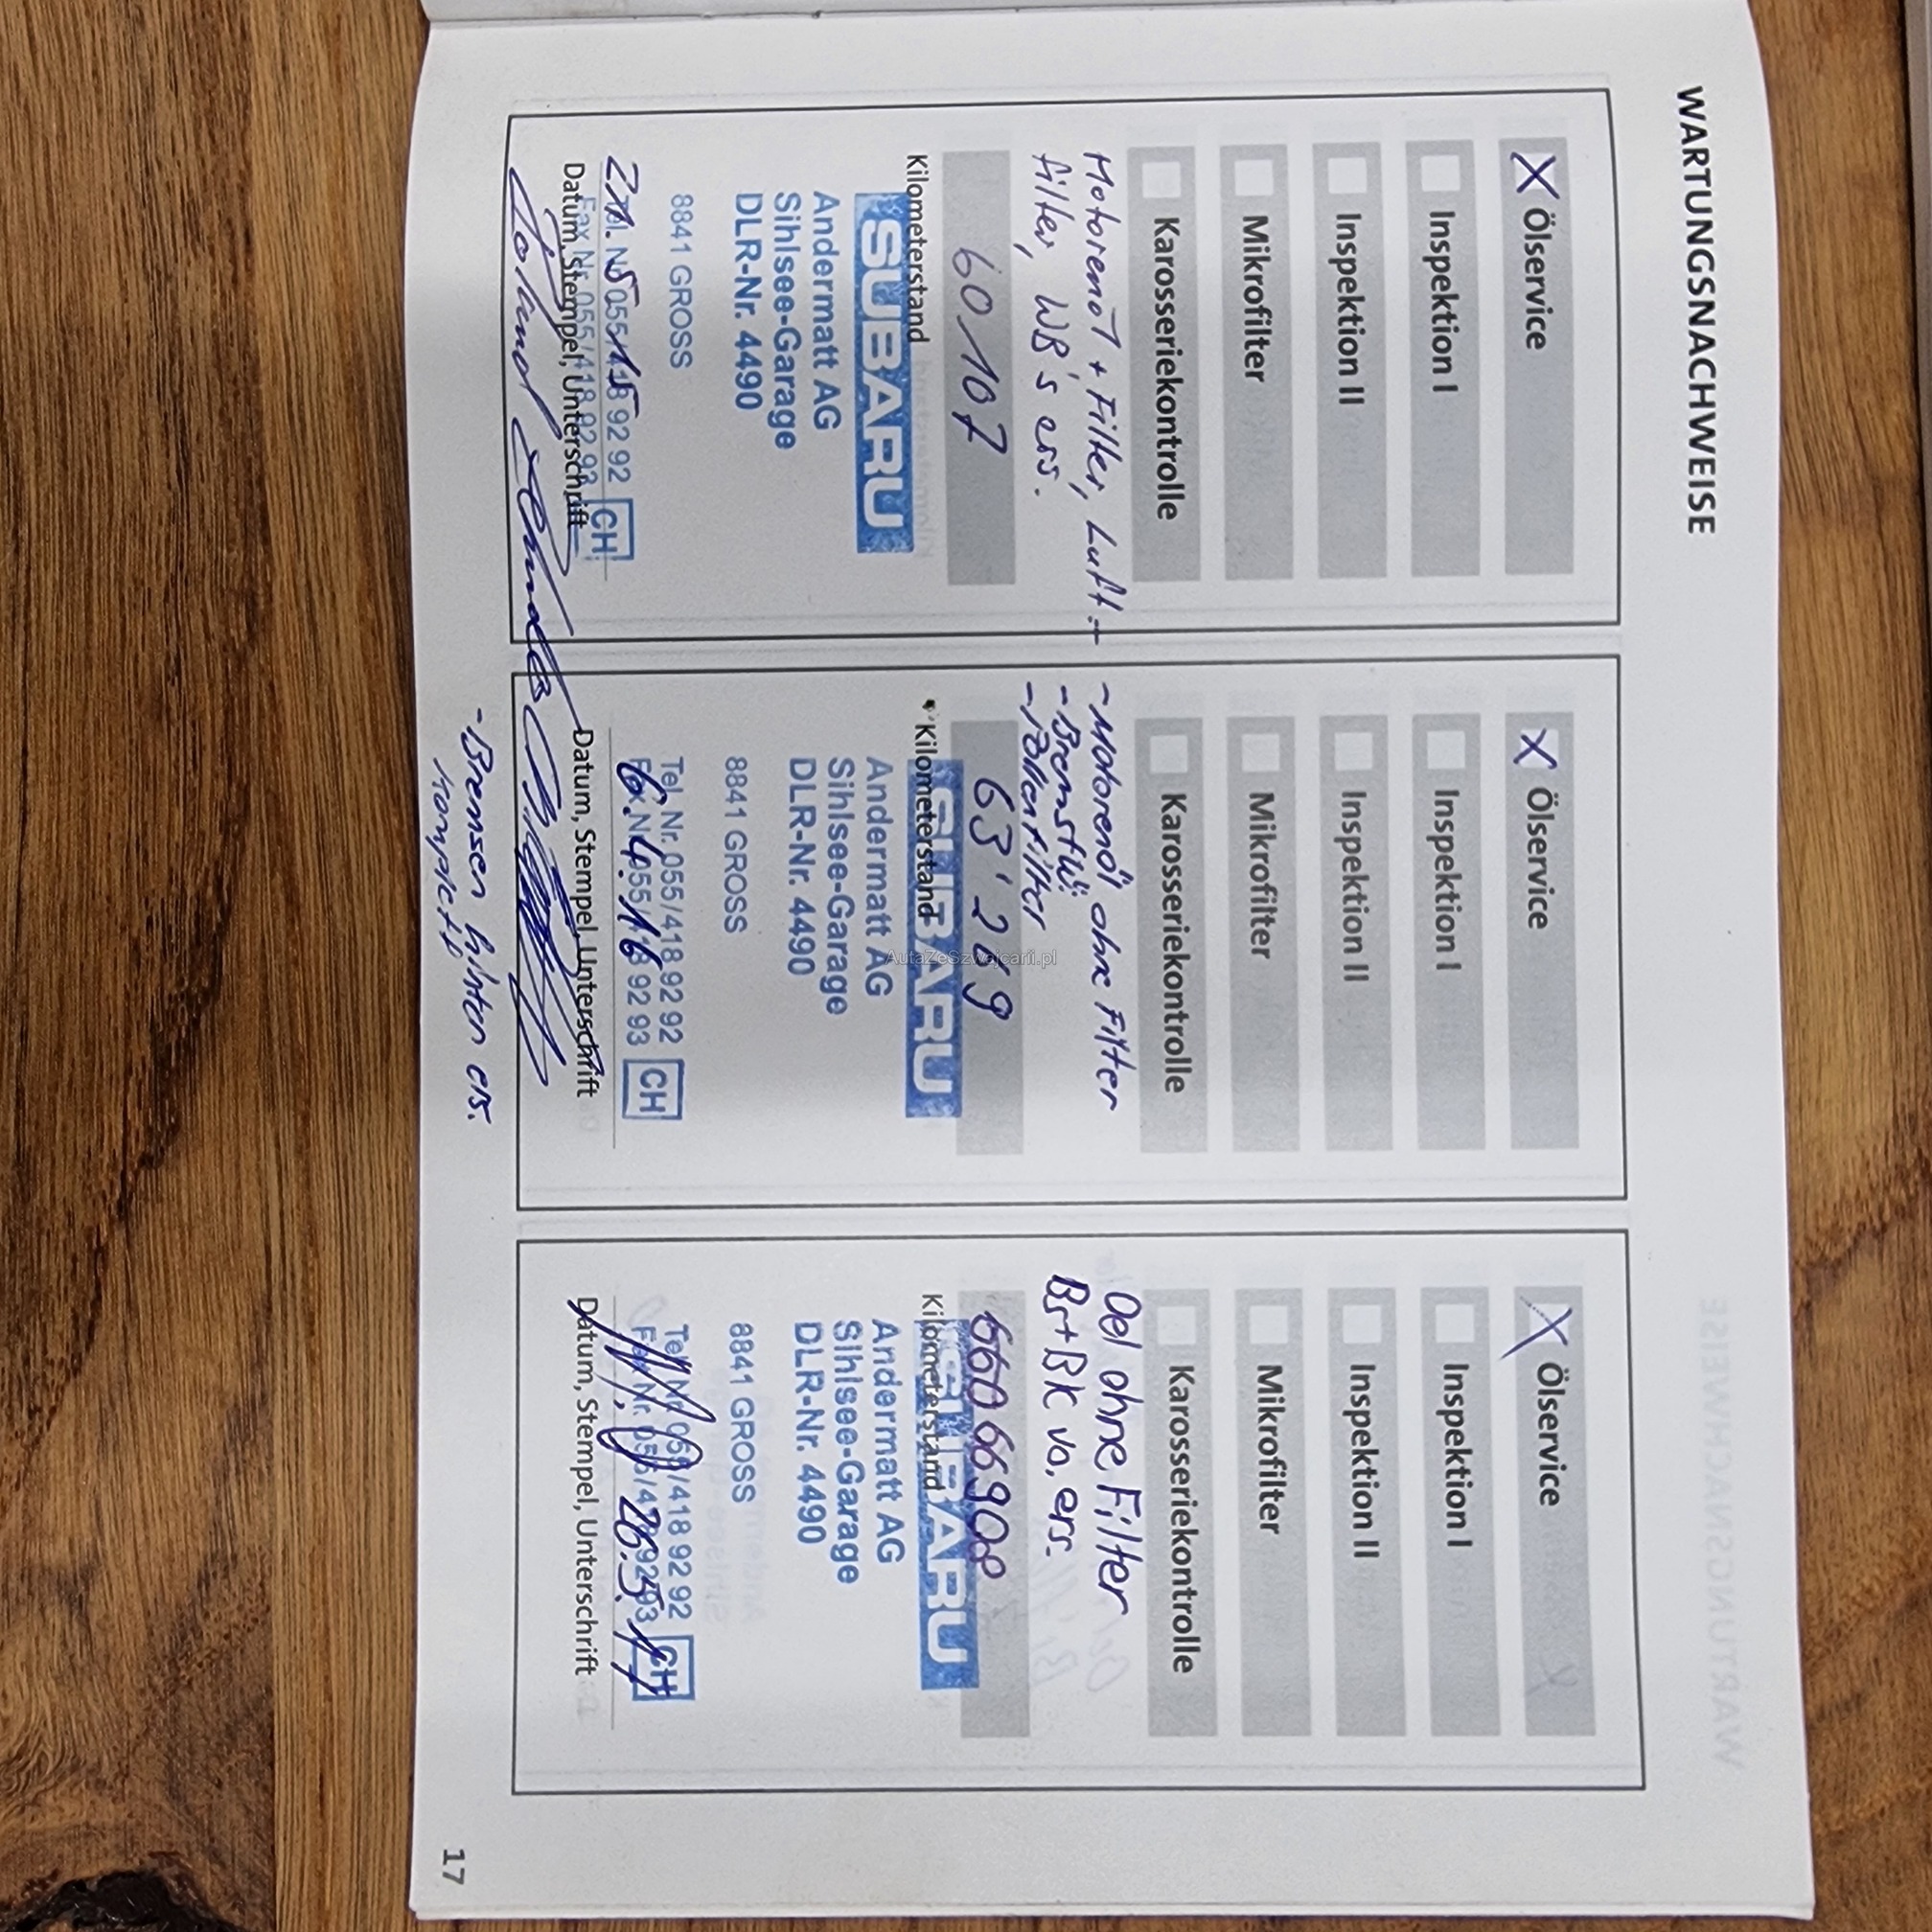 WARTUNGSNACHWEISE
X Ölservice
Inspektion I
Inspektion II
Mikrofilter
Karosseriekontrolle
Motorenöl + Filter, Luft-
filter, WB's ers.
60107
Kilometerstand
SUBARU
Andermatt AG
Sihlsee-Garage
DLR-Nr. 4490
8841 GROSS
Tel. Nr. 055/418 92 92
Fax Nr. 055/418 92 93 CH
21. 5. 15
Datum, Stempel, Unterschrift
X Ölservice
Inspektion I
Inspektion II
Mikrofilter
Karosseriekontrolle
- Motorenöl ohne Filter
- Bremsflü.
- Pollenfilter
63'269
Kilometerstand
SUBARU
Andermatt AG
Sihlsee-Garage
DLR-Nr. 4490
8841 GROSS
Tel. Nr. 055/418 92 92
Fax Nr. 055/418 92 93 CH
6. 4. 16
Datum, Stempel, Unterschrift
- Bremsen hinten ers.
komplett
X Ölservice
Inspektion I
Inspektion II
Mikrofilter
Karosseriekontrolle
Oel ohne Filter
Bs+BK vo. ers.
Kilometerstand
SUBARU
Andermatt AG
Sihlsee-Garage
DLR-Nr. 4490
8841 GROSS
Tel. Nr. 055/418 92 92
Fax Nr. 055/418 92 93 CH
26.5.17
Datum, Stempel, Unterschrift
17
AutaZeSzwajcarii.pl